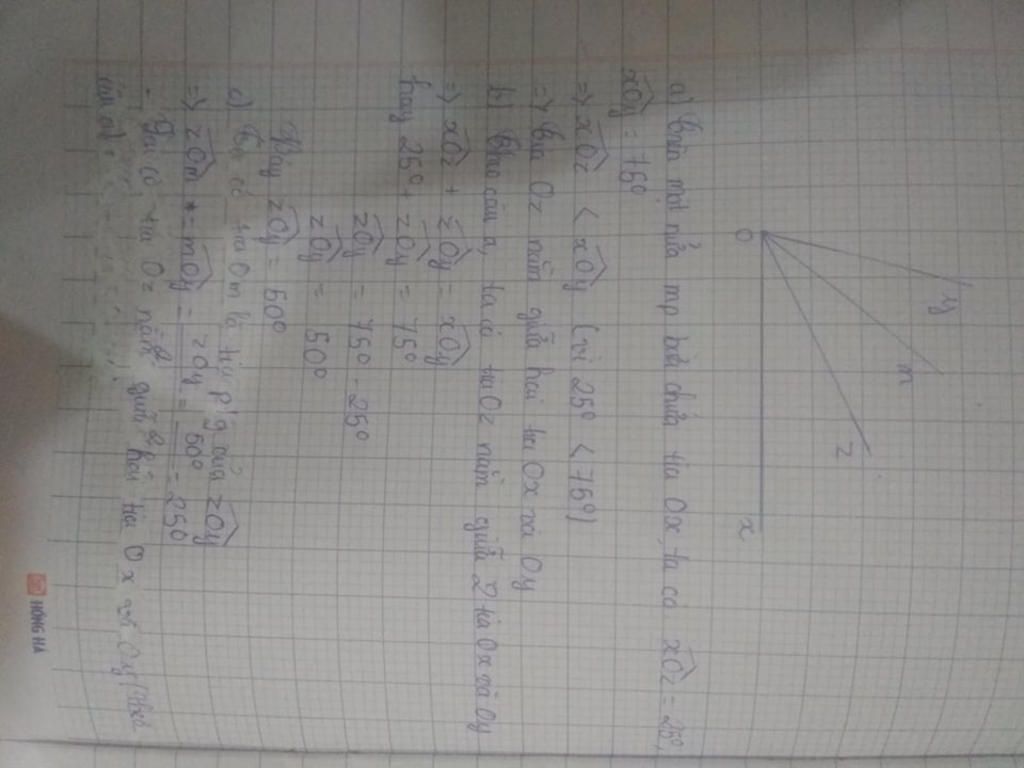 O
y
m
z
x
a) Trên một nửa mp bờ chứa tia Ox, ta có xOz = 25°,
xOy = 75°
=> xOz < xOy (vì 25° < 75°)
=> tia Oz nằm giữa hai tia Ox và Oy
b) Theo câu a, ta có tia Oz nằm giữa 2 tia Ox và Oy
=> xOz + zOy = xOy
hay 25° + zOy = 75°
zOy = 75° - 25°
zOy = 50°
Vậy zOy = 50°
c) Ta có tia Om là tia p'g của zOy
=> zOm = mOy = zOy = 50° = 25°
Ta có tia Oz nằm giữa hai tia Ox và Oy (theo
câu a)
HỒNG HÀ